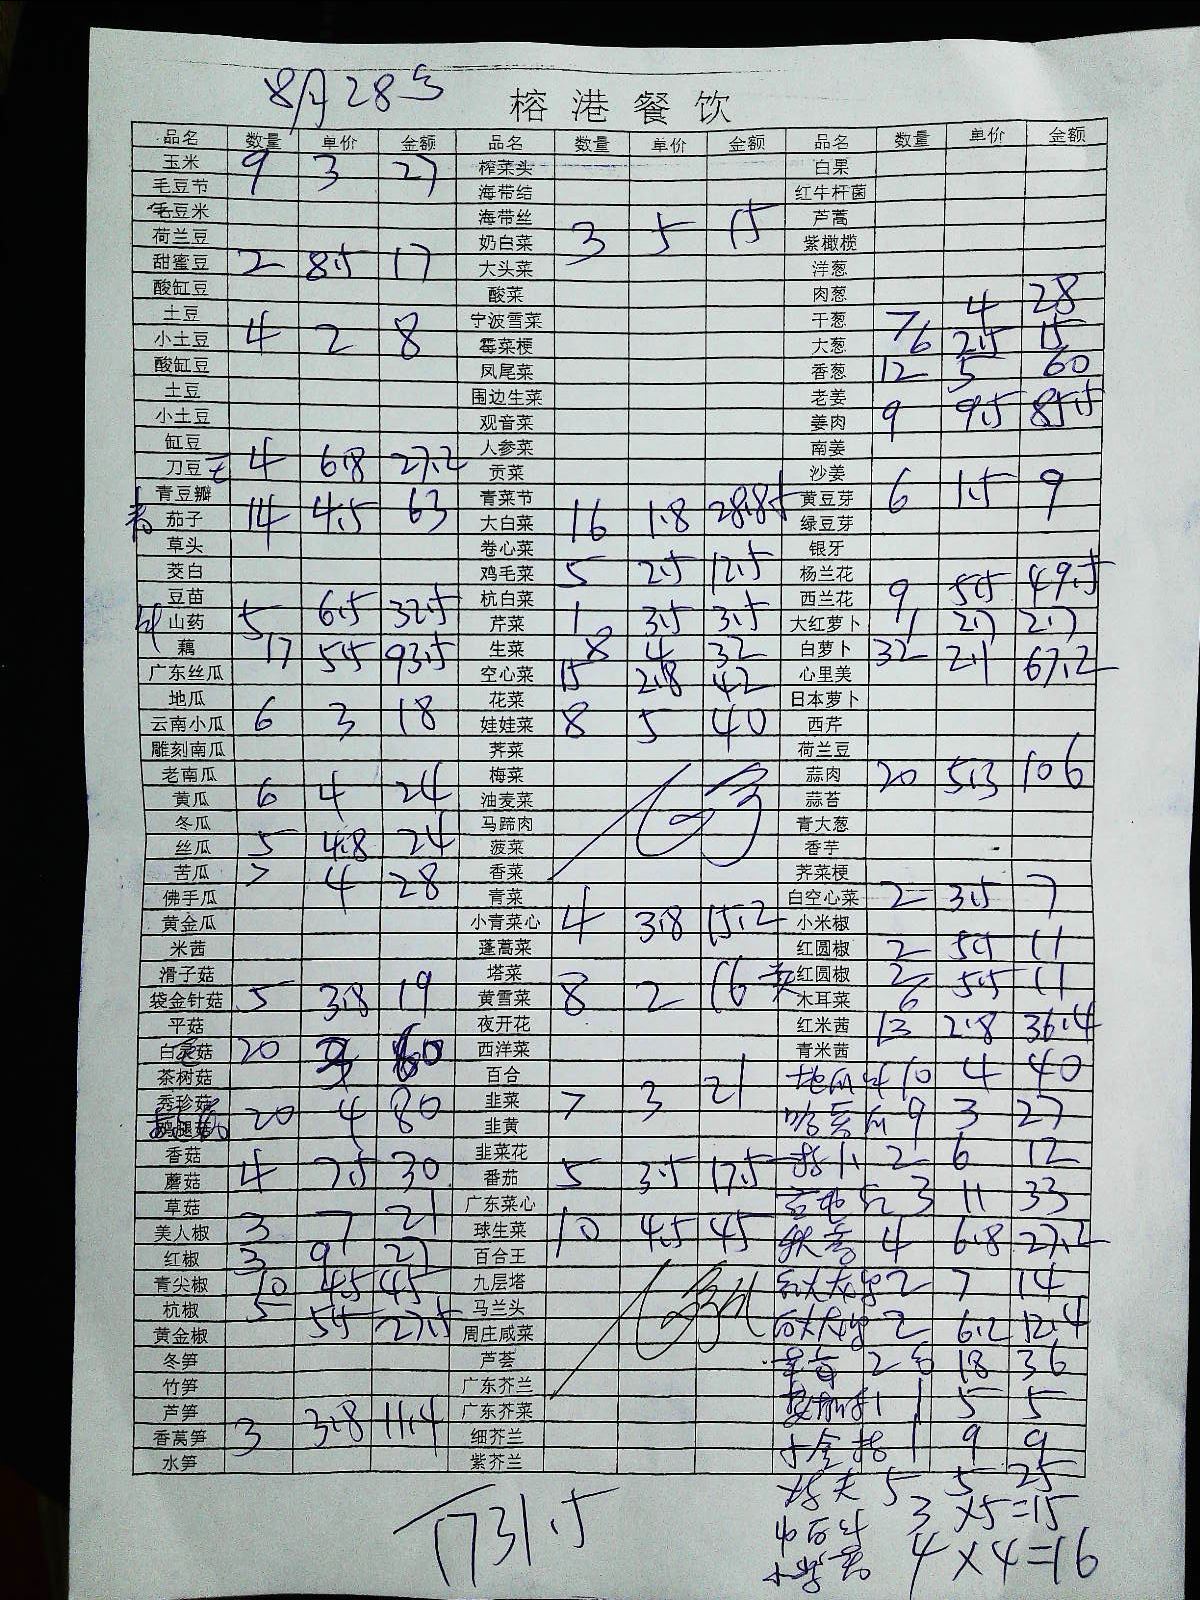 8月28号
榕港餐饮
品名 数量 单价 金额 品名 数量 单价 金额 品名 数量 单价 金额
玉米 9 3 27 榨菜头 白果
毛豆节 海带结 红牛杆菌
毛豆米 海带丝 芦蒿
荷兰豆 奶白菜 3 5 15 紫橄榄
甜蜜豆 2 8.5 17 大头菜 洋葱
酸缸豆 酸菜 肉葱
土豆 宁波雪菜 干葱 7 4 28
小土豆 4 2 8 霉菜梗 大葱 6 2.5 15
酸缸豆 凤尾菜 香葱 12 5 60
土豆 围边生菜 老姜
小土豆 观音菜 姜肉 9 9.5 85.5
缸豆 人参菜 南姜
刀豆 4 6.8 27.2 贡菜 沙姜
青豆瓣 青菜节 黄豆芽 6 1.5 9
茄子 14 4.5 63 大白菜 16 1.8 28.8 绿豆芽
草头 卷心菜 银牙
茭白 鸡毛菜 5 2.5 12.5 杨兰花
豆苗 杭白菜 西兰花 9 5.5 49.5
山药 5 6.5 32.5 芹菜 1 3.5 3.5 大红萝卜 1 2.7 2.7
藕 17 5.5 93.5 生菜 8 4 32 白萝卜 32 2.1 67.2
广东丝瓜 空心菜 15 2.8 42 心里美
地瓜 花菜 日本萝卜
云南小瓜 6 3 18 娃娃菜 8 5 40 西芹
雕刻南瓜 荠菜 荷兰豆
老南瓜 梅菜 蒜肉 20 5.3 106
黄瓜 6 4 24 油麦菜 蒜苔
冬瓜 马蹄肉 青大葱
丝瓜 5 4.8 24 菠菜 香芋
苦瓜 7 4 28 香菜 荠菜梗
佛手瓜 青菜 白空心菜 2 3.5 7
黄金瓜 小青菜心 4 3.8 15.2 小米椒
米茜 蓬蒿菜 红圆椒 2 5.5 11
滑子菇 塔菜 红圆椒 2 5.5 11
袋金针菇 5 3.8 19 黄雪菜 8 2 16 木耳菜 6
平菇 夜开花 红米茜 13 2.8 36.4
白灵菇 20 3 60 西洋菜 青米茜
茶树菇 百合 10 4 40
秀珍菇 韭菜 7 3 21 9 3 27
20 4 80 韭黄
香菇 韭菜花 2 6 12
蘑菇 4 7.5 30 番茄 5 3.5 17.5
草菇 广东菜心 3 11 33
美人椒 3 7 21 球生菜 10 4.5 45 4 6.8 27.2
红椒 3 9 27 百合王
青尖椒 10 4.5 45 九层塔 2 7 14
杭椒 5 5.5 27.5 马兰头
黄金椒 周庄咸菜 2 6.2 12.4
冬笋 芦荟 2 18 36
竹笋 广东芥兰
芦笋 广东芥菜 1 5 5
香莴笋 3 3.8 11.4 细芥兰 1 9 9
水笋 紫芥兰
5 5 25
3×5=15
4×4=16
1731.5